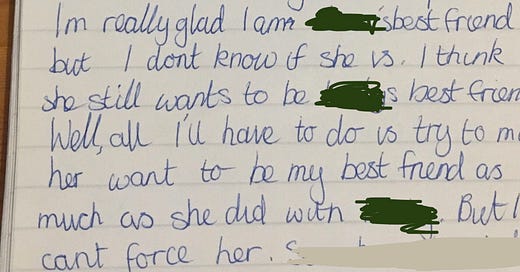 Im really glad I am 's best friend
but I dont know if she is. I think
she still wants to be s best frien
Well, all I'll have to do is try to m
her want to be my best friend as
much as she did with . But I
cant force her. S